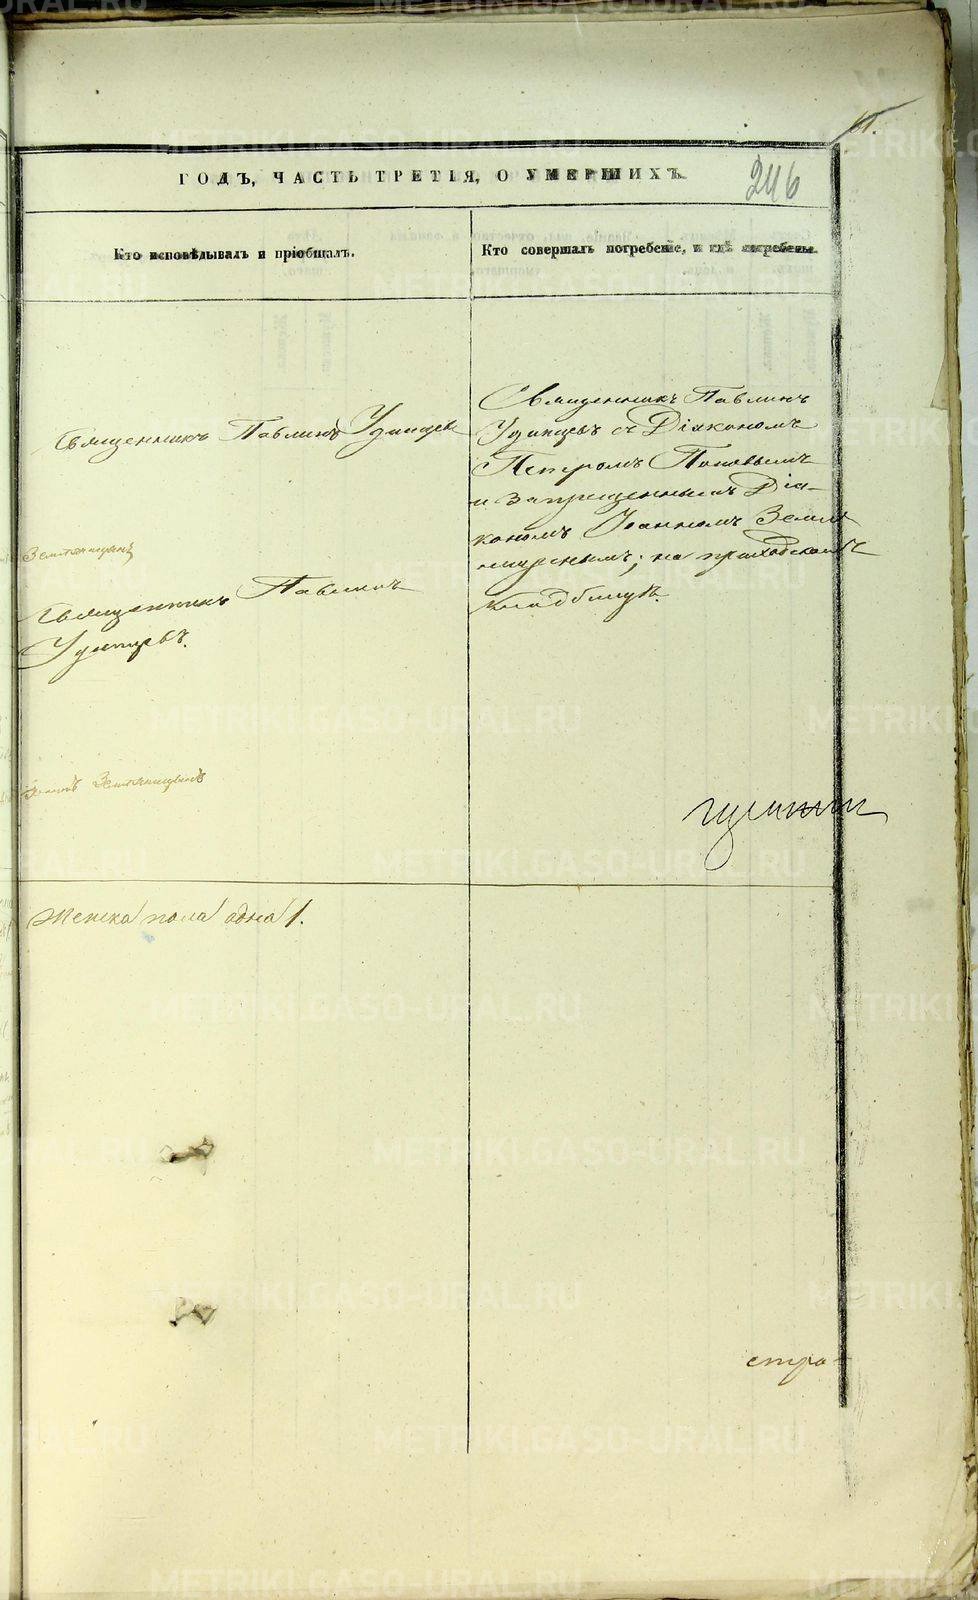 61.
ГОДЪ, ЧАСТЬ ТРЕТІЯ, О УМЕРШИХЪ.
246
Кто исповѣдывалъ и пріобщалъ.
Кто совершалъ погребеніе, и гдѣ погребены.
Священникъ Павлинъ Удинцевъ
Земляницынъ
Священникъ Павлинъ
Удинцевъ.
Земляницынъ
Женска пола одна 1.
Священникъ Павлинъ
Удинцевъ съ Діякономъ
Петромъ Поповымъ
и запрещеннымъ Діа-
кономъ Іоанномъ Земля
ницынымъ; на приходскомъ
кладбищѣ.
стра
METRIKI.GASO-URAL.RU